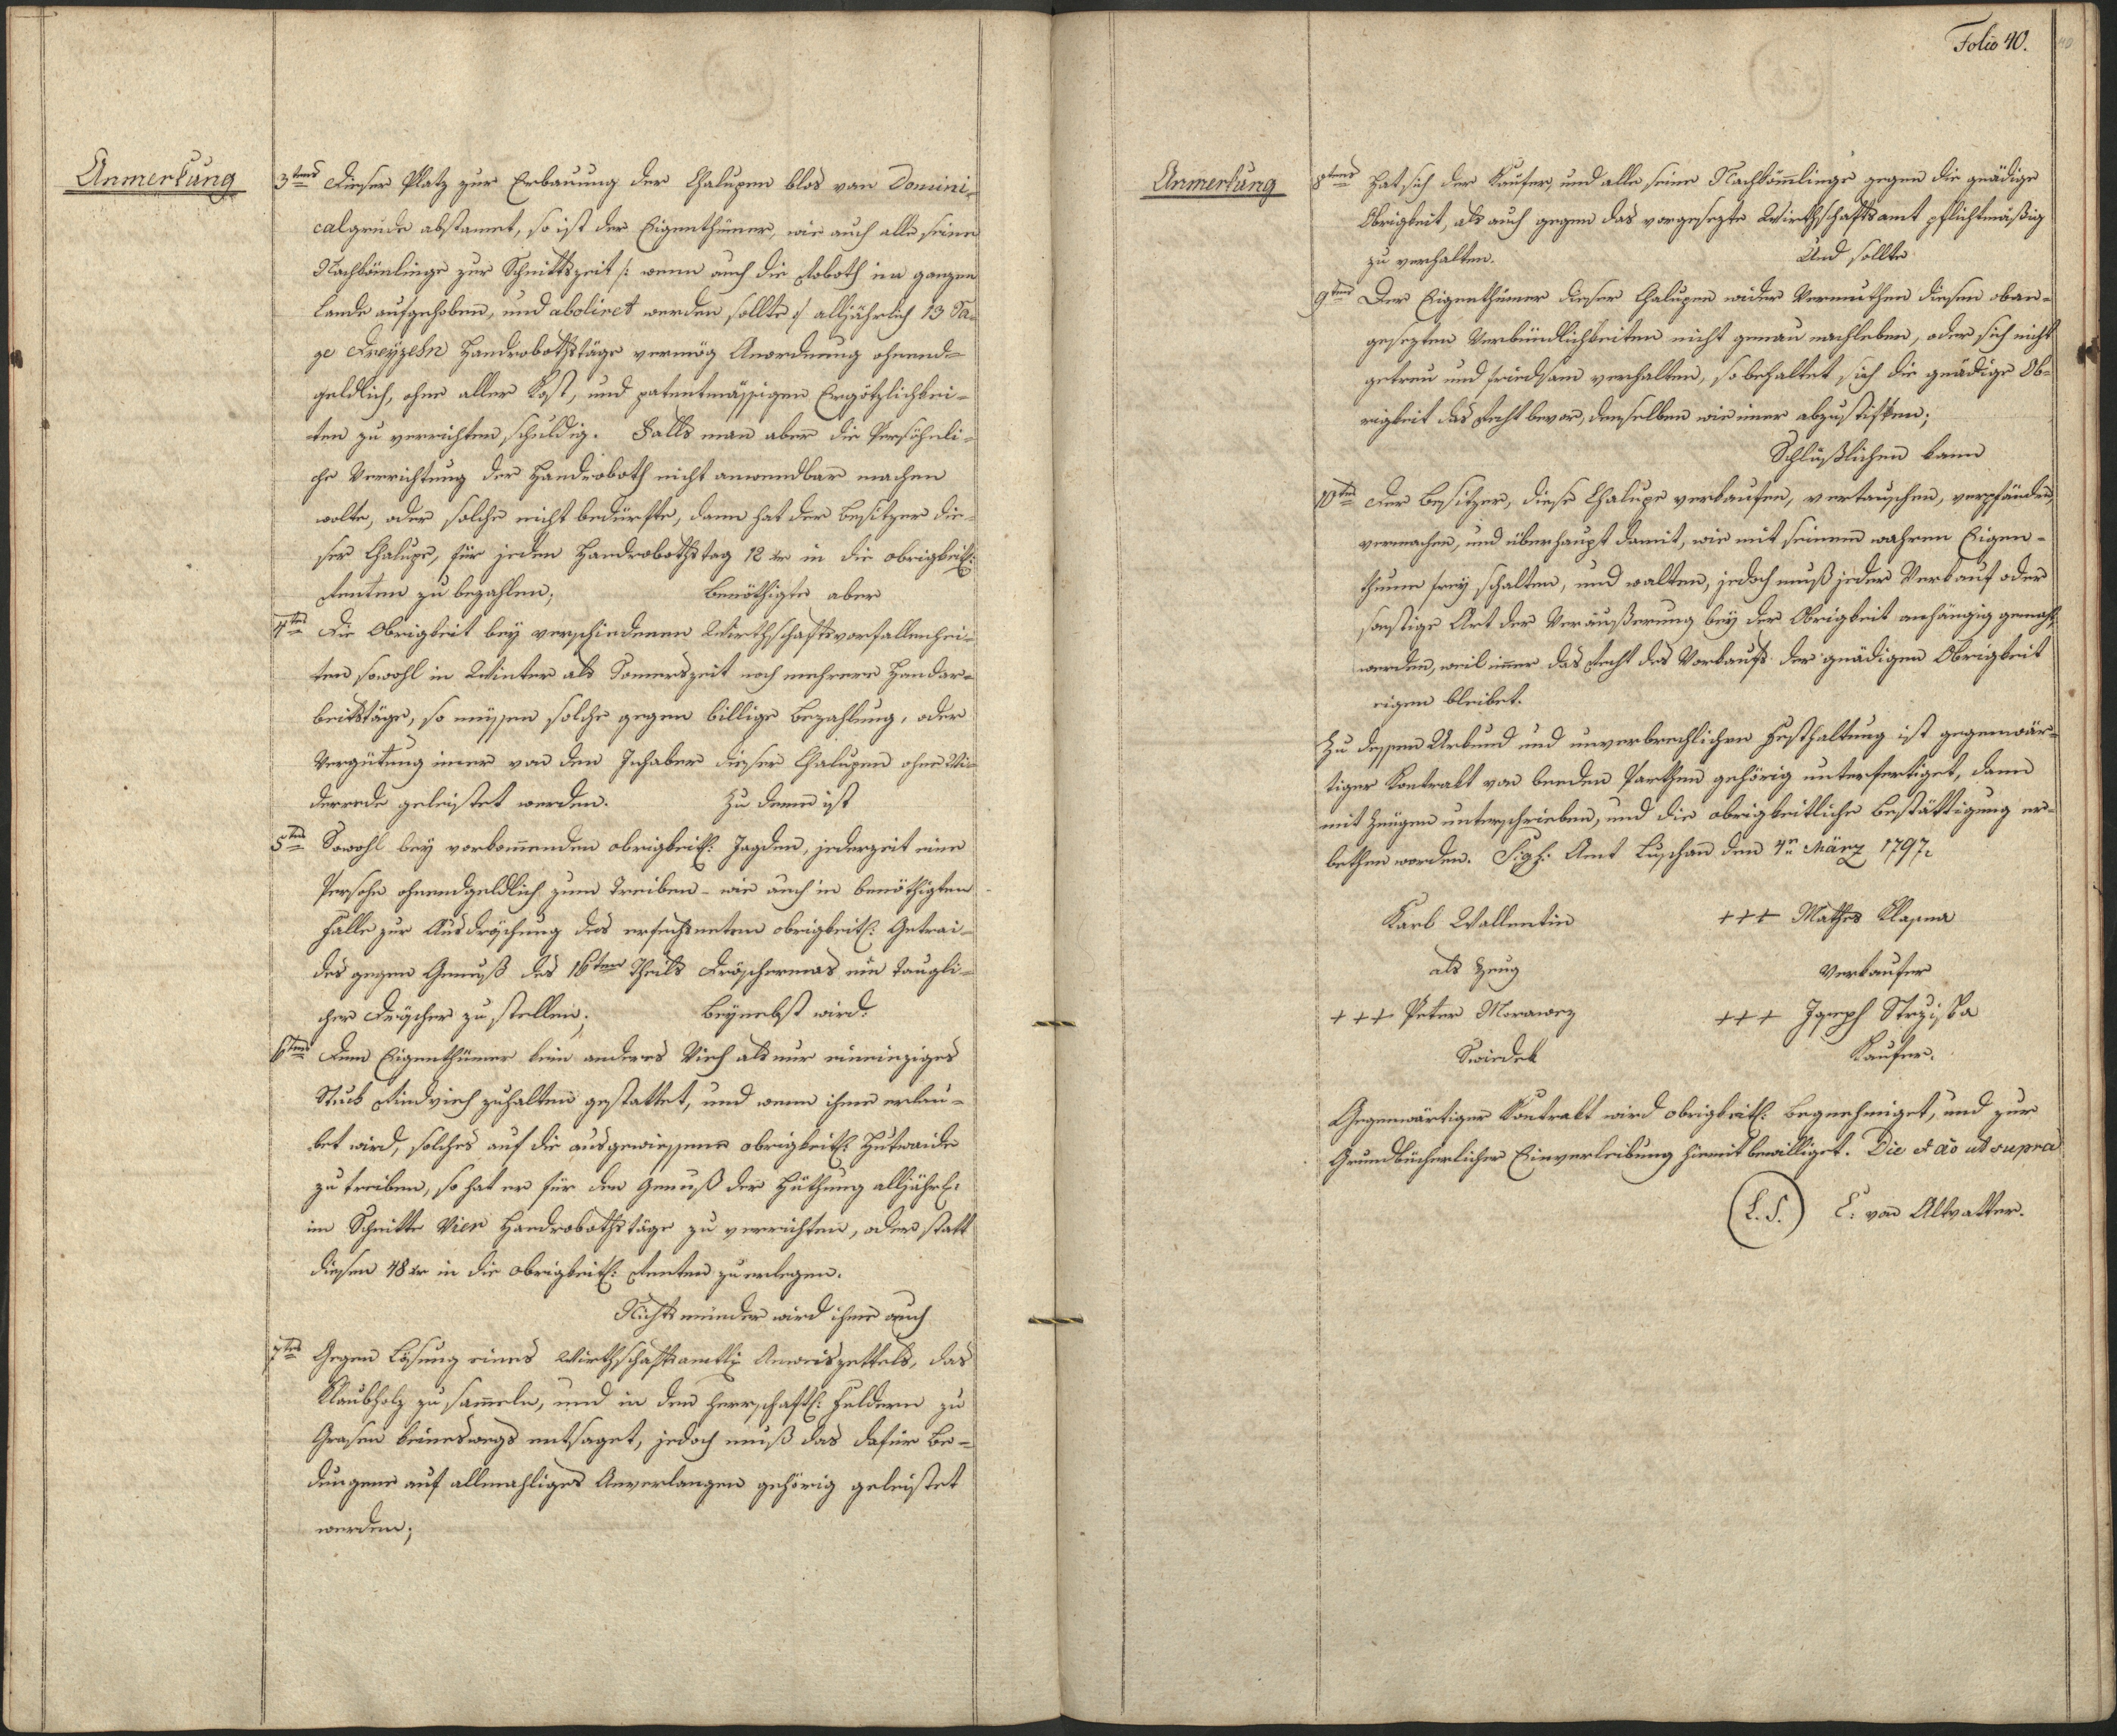 Anmerkung
3tens Dieser Platz zur Erbauung der Chalupen blos von Domini-
calgrunde abstamet, so ist der Eigenthümer, wie auch alle seine
Nachkömlinge zur Schnittszeit /: wenn auch die Roboth im ganzen
Lande aufgehoben, und abolirt werden sollte :/ alljährlich 13 Ta-
ge Dreyzehn Handrobothstäge vermög Anordnung ohnend-
geldlich, ohne aller Kost, und patentmässigen Ergötzlichkei-
ten zu verrichten schuldig. Falls man aber die Persöhnli-
che Verrichtung der Handroboth nicht anwendbar machen
wolte, oder solche nicht bedürfte, dann hat der Besitzer die-
ser Chalupe, für jeden Handrobothstag 12 xr in die obrigkeitl:
Renten zu bezahlen; Benöthigte aber
4tens Die Obrigkeit bey verschiedenen Wirthschaftsvorfallenhei-
ten sowohl in Winter als Somerszeit noch mehrere Handar-
beitstäge, so müssen solche gegen billige Bezahlung, oder
Vergütung imer von den Inhaber dieser Chalupen ohne Wi-
derrede geleistet werden. Zu deme ist
5tens Sowohl bey vorkommenden obrigkeitl: Jagden, jederzeit eine
Persohn ohnendgeldlich zum Treiben - wie auch in benöthigten
Falle zur Ausdröschung des erfechsneten obrigkeitl: Getrai-
des gegen Genuß des 16ten Theils Dröschermas ein taugli-
cher Dröscher zu stellen; Beynebst wird
6tens Dem Eigenthümer kein anderes Vieh als nur ein einziges
Stuck Rindvieh zuhalten gestattet, und wenn ihme erlau-
bet wird, solches auf die ausgewiessene obrigkeitl: Hutwaide
zu treiben, so hat er für den Genuß der Hüthung alljährl:
im Schnitte Vier Handrobothstäge zu verrichten, oder statt
diesen 48 xr in die obrigkeitl: Renten zu erlegen.
Nichts minder wird ihme auch
7tens Gegen Lösung eines Wirthschaftsamtl: Anweiszettels, das
Klaubholz zu sammeln, und in den herrschaftl: Feldern zu
Grasen keineswegs entsaget, jedoch muß das dafür Be-
dungene auf allmahliges Anverlangen gehörig geleistet
werden;
Folio 40.
40
Anmerkung
8tens Hat sich der Kaufer, und alle seine Nachkömlinge gegen die gnädige
Obrigkeit, als auch gegen das vorgesezte Wirthschaftsamt pflichtmäßig
zu verhalten. Und sollte
9tens Der Eigenthümer dieser Chalupen wider Vermuthen diesen oban-
gesezten Verbündlichkeiten nicht genau nachleben, oder sich nicht
getreu und friedsam verhalten, so behaltet sich die gnädige Ob-
rigkeit das Recht bevor, denselben wie imer abzustiften;
Schlüßlichen kann
10tens Der Besitzer, diese Chalupe verkaufen, vertauschen, verpfänden,
vermachen, und überhaupt damit, wie mit seinem wahren Eigen-
thume frey schalten, und walten, jedoch muß jeder Verkauf oder
sonstige Art der Veräußerung bey der Obrigkeit anhängig gemacht
werden, weil immer das Recht des Vorkaufs der gnädigen Obrigkeit
eigen bleibet.
Zu dessen Urkund und unverbrechlichen Festhaltung ist gegenwär-
tiger Kontrakt von beeden Parthen gehörig unterfertiget, dann
mit Zeugen unterschrieben, und die obrigkeitliche Bestättigung er-
bethen worden. Sigl: Amt Luschan den 4n März 1797.
Karl Wallentin +++ Mathes Klapna
als Zeug Verkaufer
+++ Peter Morawez +++ Joseph Strziska
Swiedek Kaufer.
Gegenwärtiger Kontrakt wird obrigkeitl: begnehmiget, und zur
Grundbücherlicher Einverleibung hiemit bewilliget. Die et ao ut supra
(L.S.) E: von Altvatter.